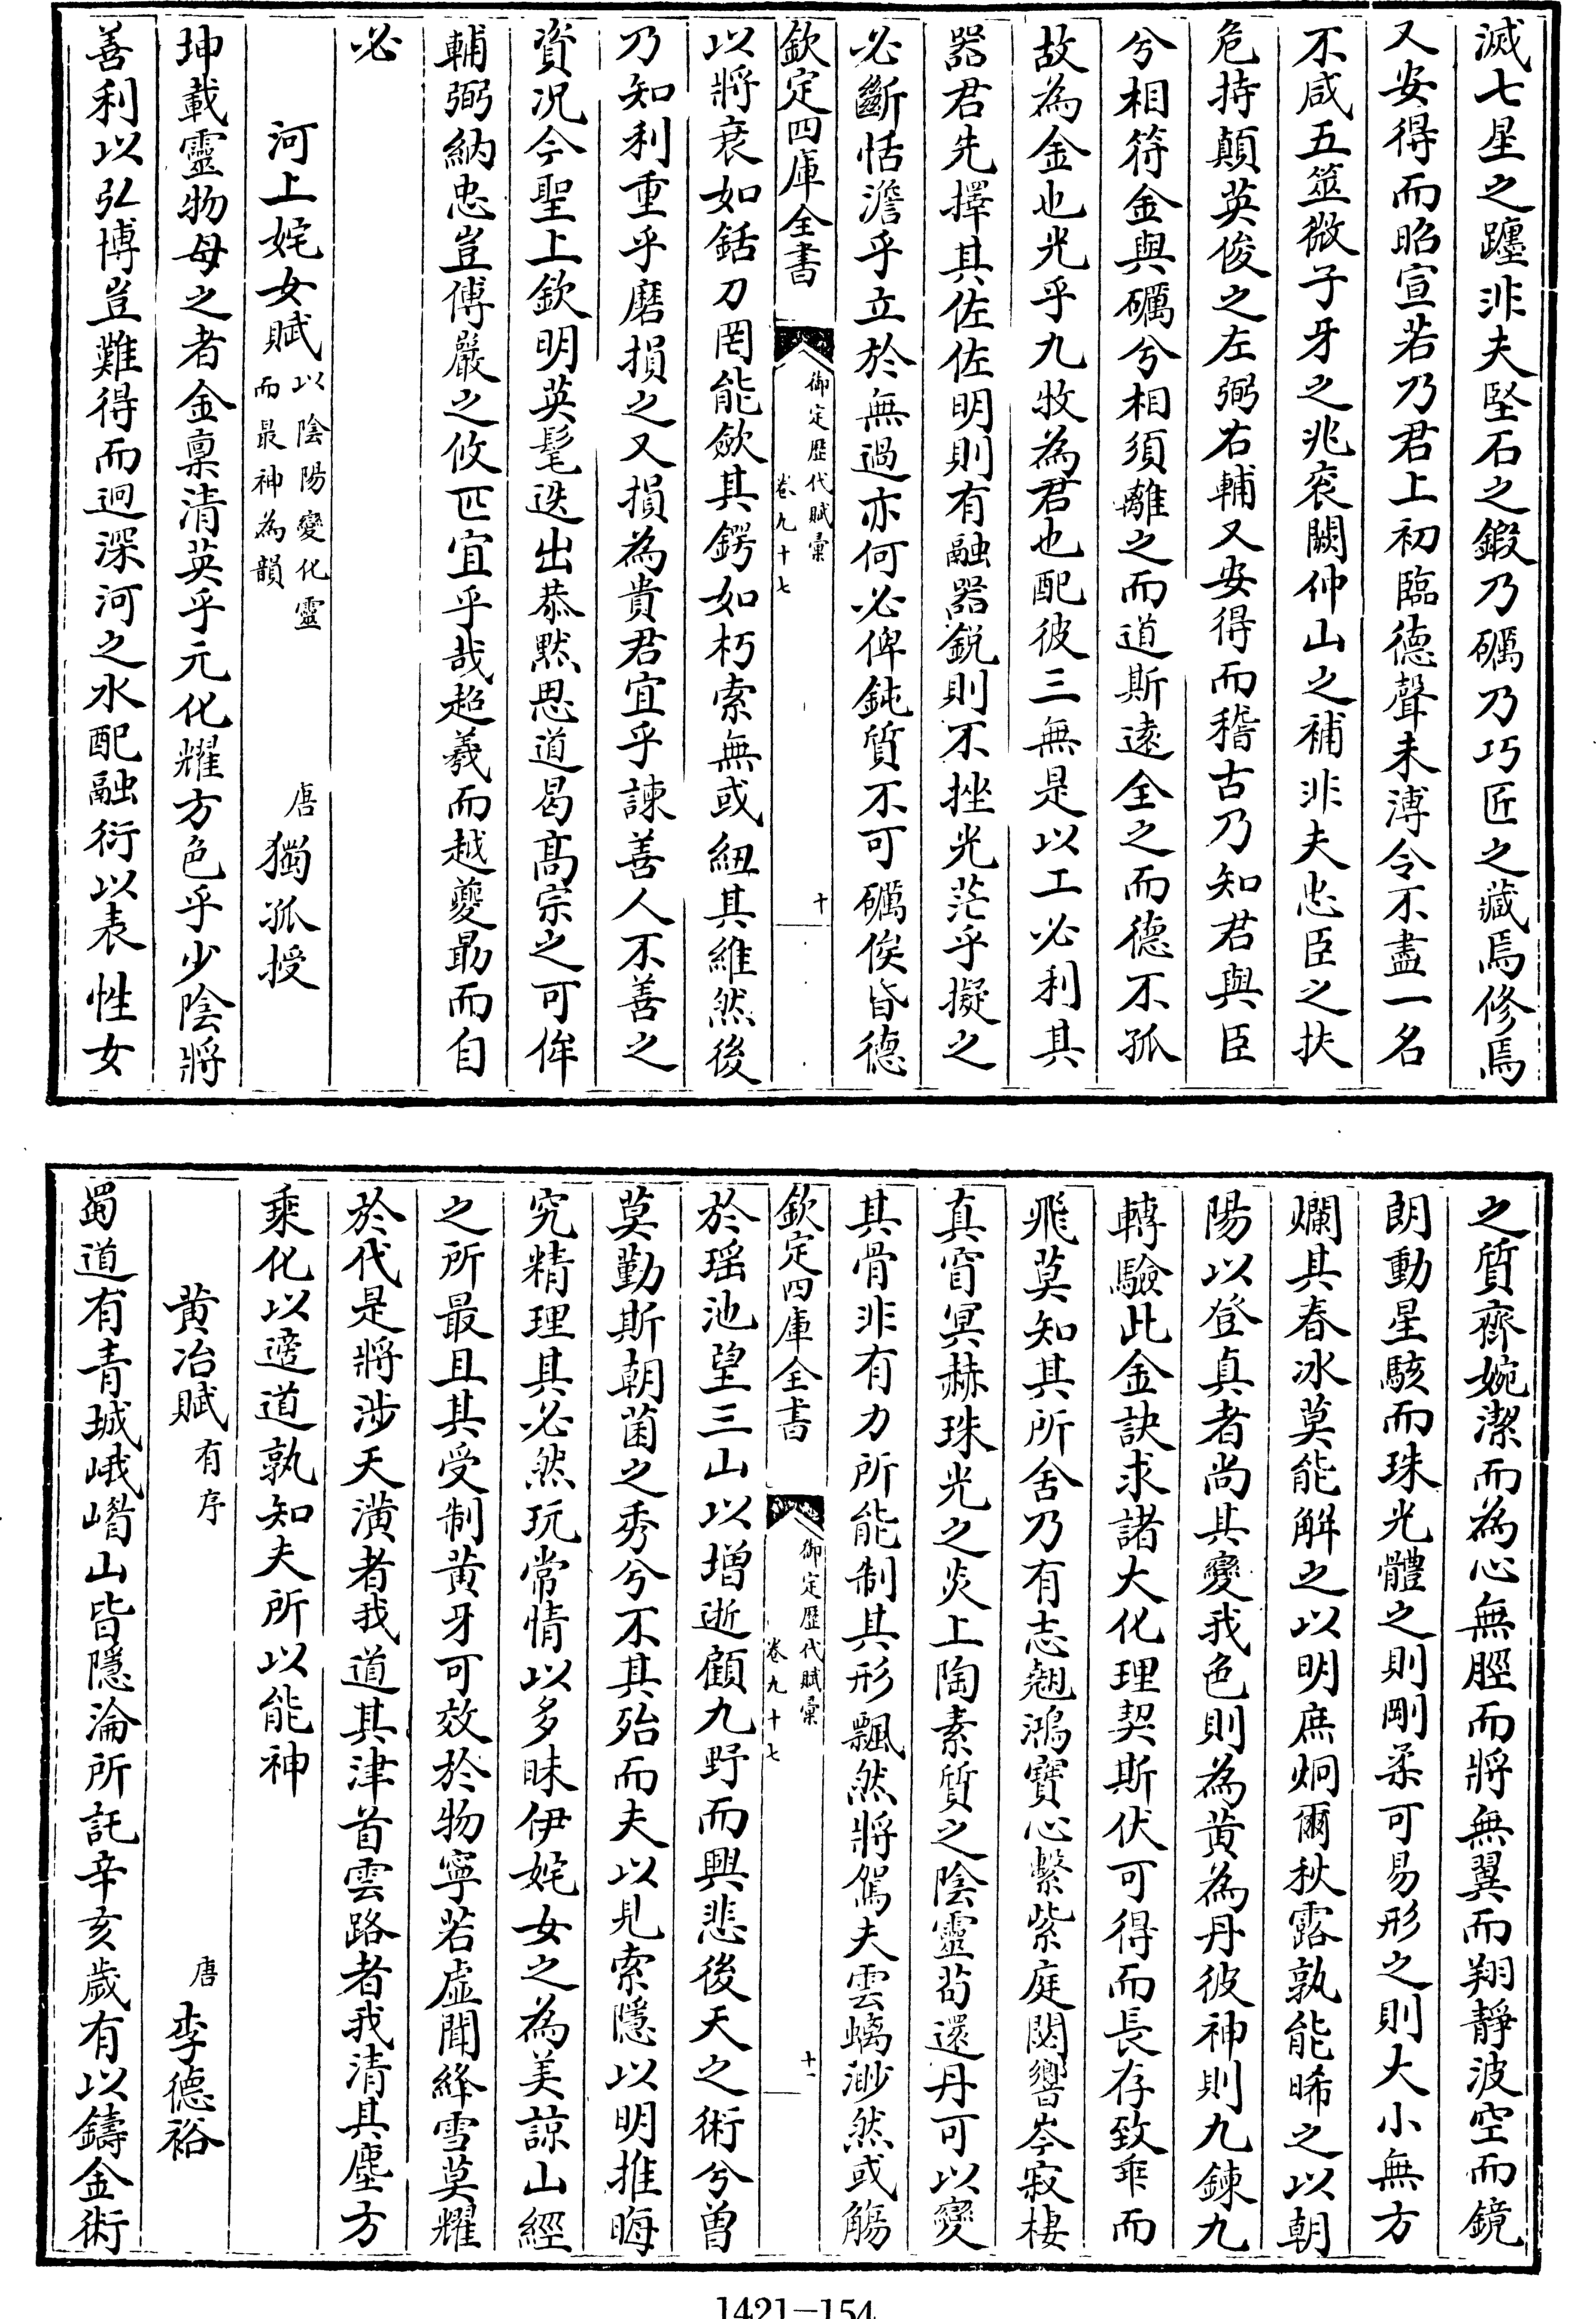 滅七星之躔非夫堅石之鍛乃礪乃巧匠之藏焉修焉
又安得而昭宣若乃君上初臨德聲未溥令不盡一名
不咸五筮微子牙之兆衮闕仲山之補非夫忠臣之扶
危持顛英俊之左弼右輔又安得而稽古乃知君與臣
兮相符金與礪兮相須離之而道斯遠全之而德不孤
故為金也光乎九牧為君也配彼三無是以工必利其
器君先擇其佐佐明則有融器鋭則不挫光茫乎擬之
必斷恬澹乎立於無過亦何必俾鈍質不可礪俟昏德
欽定四庫全書
御定歴代賦彙
卷九十七
十
以將衰如銛刀罔能歛其鍔如朽索無或紐其維然後
乃知利重乎磨損之又損為貴君宜乎諫善人不善之
資况今聖上欽明英髦迭出恭黙思道曷髙宗之可侔
輔弼納忠豈傅巖之攸匹宜乎哉超羲而越夔勗而自
必
河上姹女賦以陰陽變化靈
而最神為韻
唐獨孤授
坤載靈物母之者金稟清英乎元化耀方色乎少陰將
善利以弘博豈難得而迥深河之水配融衍以表性女
之質齊婉潔而為心無脛而將無翼而翔靜波空而鏡
朗動星駭而珠光體之則剛柔可易形之則大小無方
爛其春冰莫能解之以明庶炯爾秋露孰能晞之以朝
陽以登真者尚其變我色則為黄為丹彼神則九鍊九
轉驗此金訣求諸大化理契斯伏可得而長存致乖而
飛莫知其所舍乃有志翹鴻寶心繫紫庭閟響岑寂棲
真窅冥赫珠光之炎上陶素質之陰靈茍還丹可以變
其骨非有力所能制其形飄然將駕夫雲螭渺然或觴
欽定四庫全書
御定歴代賦彙
卷九十七
十一
於瑶池望三山以增逝顧九野而興悲後天之術兮曽
莫勤斯朝菌之秀兮不其殆而夫以見索隱以明推晦
究精理其必然玩常情以多昧伊姹女之為美諒山經
之所最且其受制黄牙可效於物寧若虚聞絳雪莫耀
於代是將涉天潢者我道其津首雲路者我清其塵方
乘化以適道孰知夫所以能神
黄冶賦有序
唐李德裕
蜀道有青城峨嵋山皆隱淪所託辛亥歲有以鑄金術
1421-154